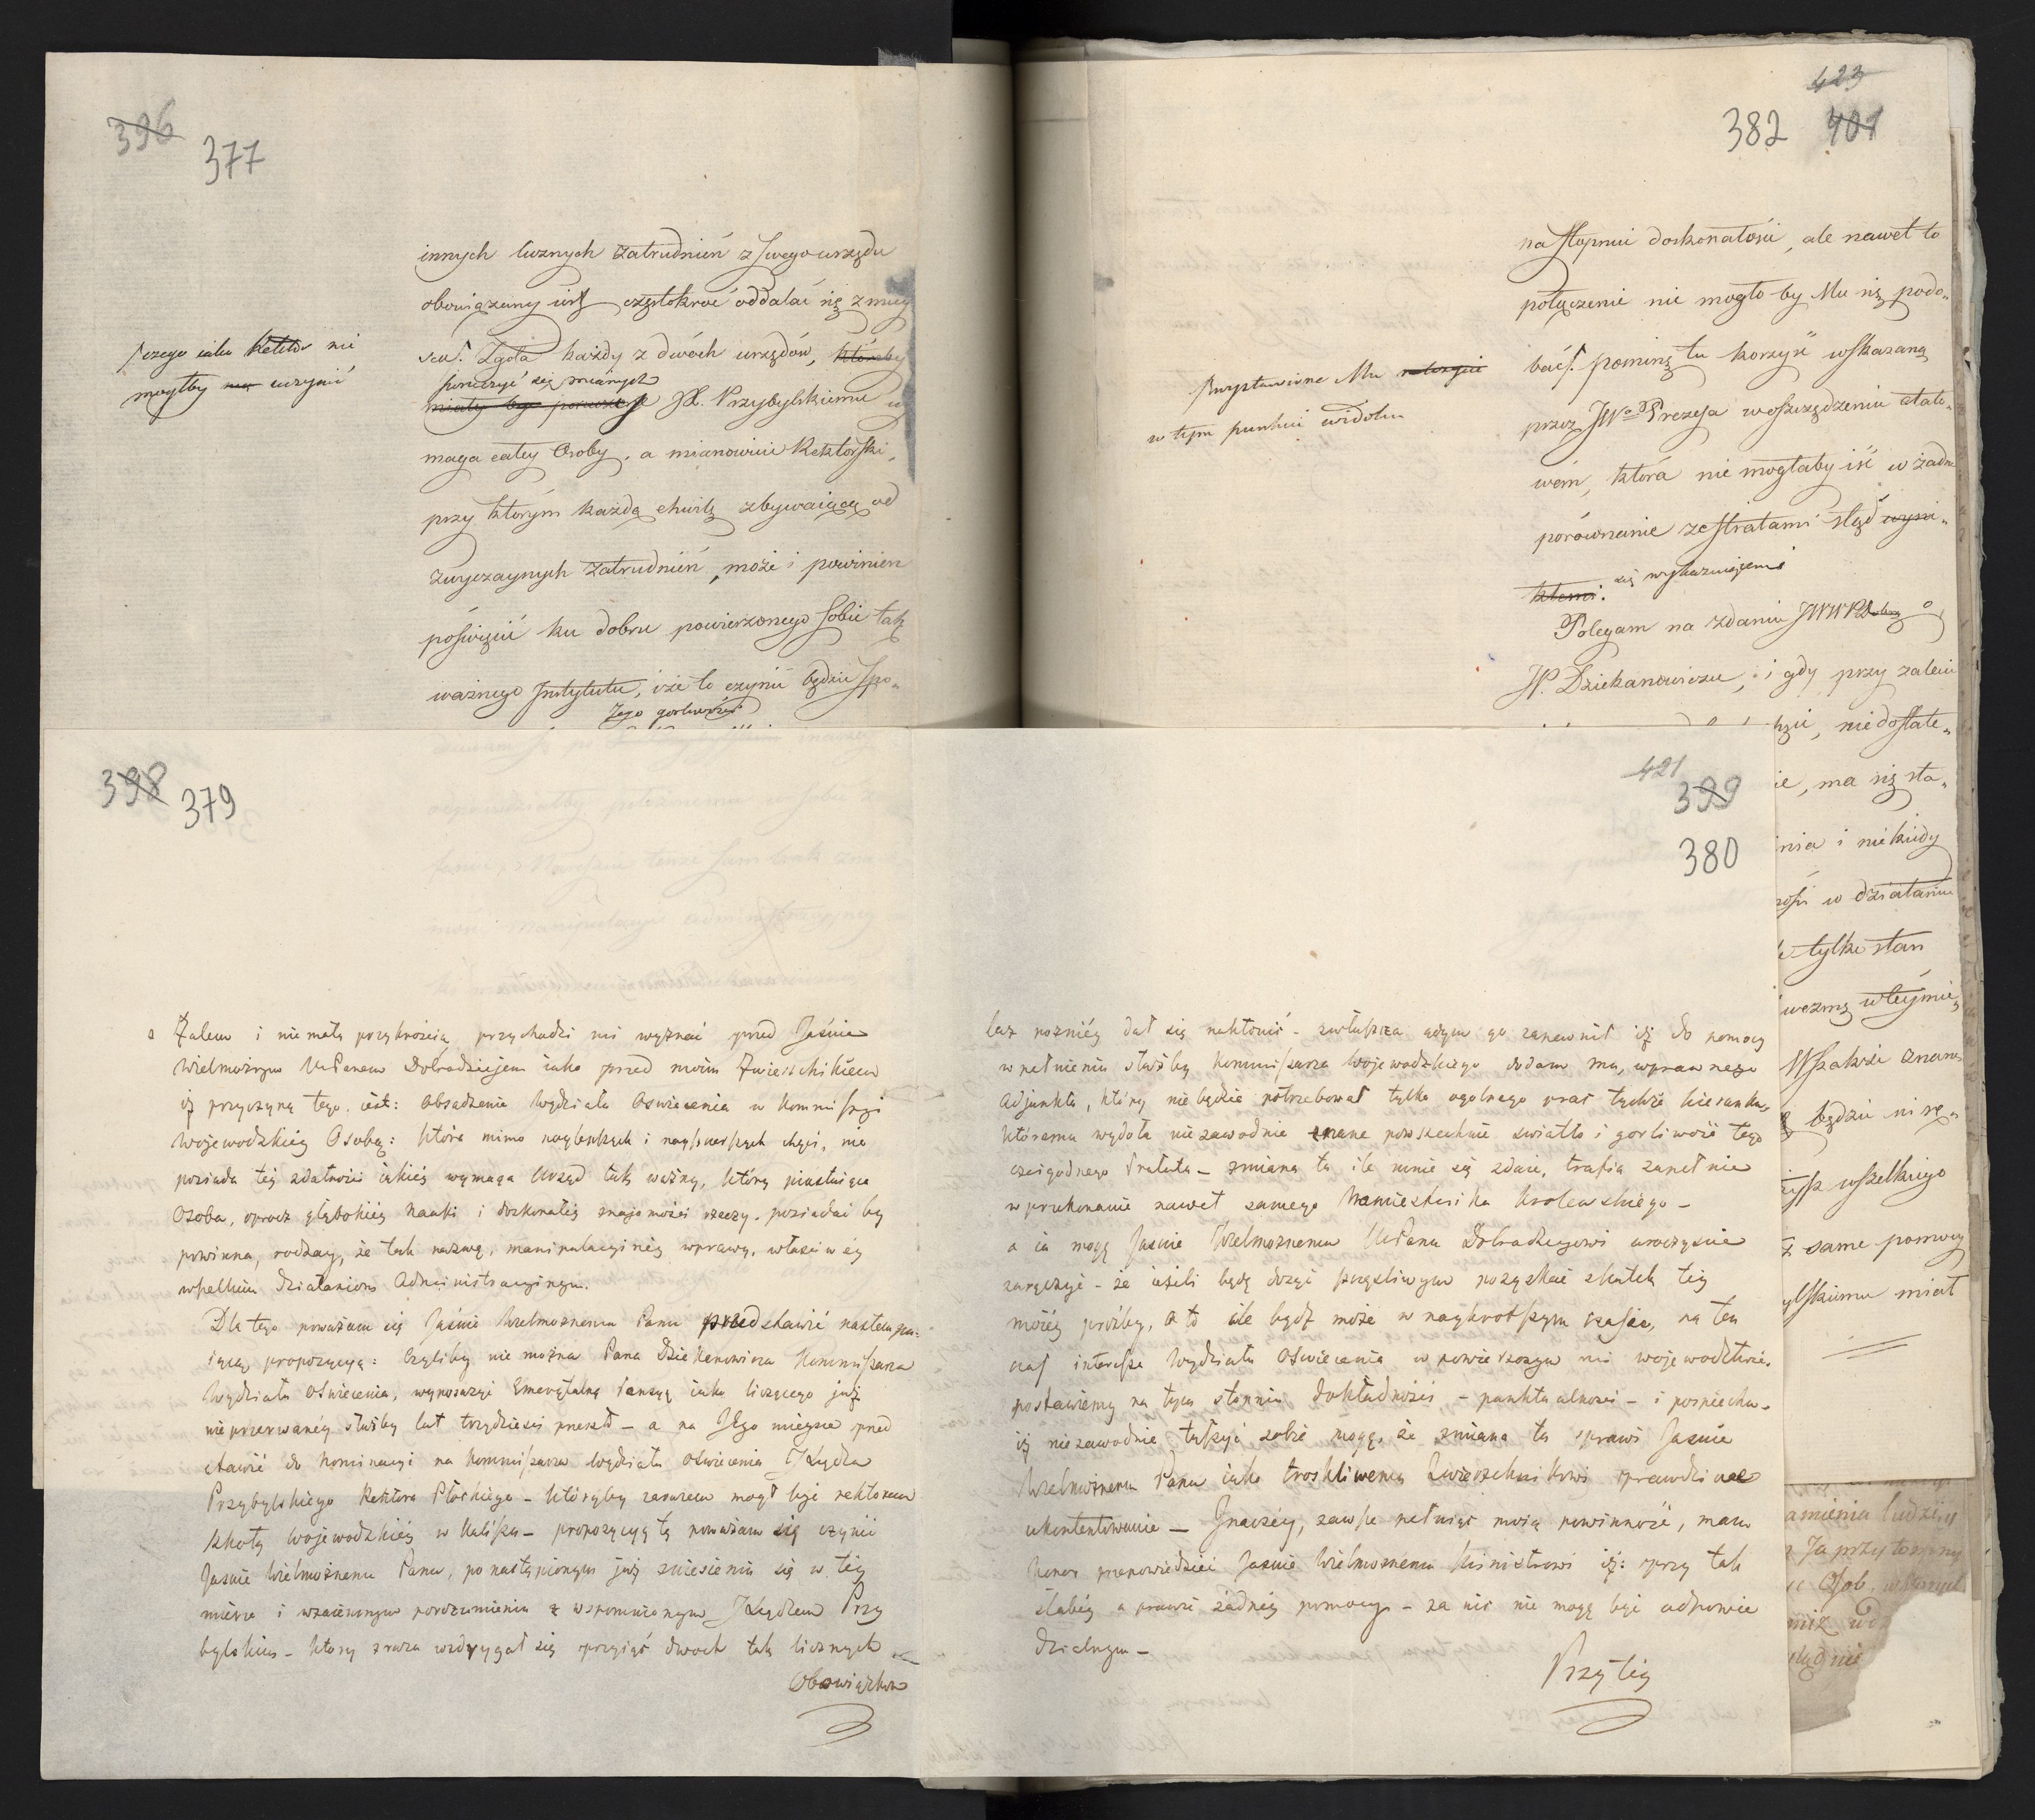 396
377
innych licznych zatrudnień z swego urzędu
obowiązany iest częstokroć oddalać się z miey
sca. Zgoła każdy z dwóch urzędów, któreby
poruczyć się mianych
miały być poruczone JX. Przybylskiemu
maga całey Osoby, a mianowicie Rektorski,
przy którym każdą chwilę zbywaiącą od
zwyczaynych zatrudnień, może i powinien
poświęcić ku dobru powierzonego sobie tak
ważnego Instytutu, iże to czynić będzie spo„
Jego gorliwość
czego iako Rektor nie
mogłby uczynić
423
382 401
na stopniu doskonałości, ale nawet to
połączenie nie mogło by Mu się podo„
bać. pominę tu korzyść wskazaną
przez JWo Prezesa w oszczędzeniu etato„
wém, która nie mogłaby iść w żadne
porównanie ze stratami stąd wyni„
kłemi. się wykazuiącemi
Polegam na zdaniu o
JP. Dziekanowiczu, i gdy przy zalecie
wystawione Mu
w tym punkcie widoku
niedostate„
ie, ma się sta„
nia i niekiedy
w działaniu
tylko stan
wezmą
Wszakże znane
będzie
wszelkiego
same pomocy
ylskiemu miał
398
379
Z Żalem i nie małą przykrością przychodzi mi wyznać przed Jaśnie
Wielmożnym WcPanem Dobrodziejem iako przed moim Zwierzchnikiem
iż przyczyną tego iest: Obsadzenie Wydziału Oświecenia w Kommissyi
Wojewodzkiéy Osobą: która mimo naylepszych i nayszczerszych chęci, nie
posiada téy zdatności iakiéy wymaga Urząd tak ważny, który piastuiąca
Osoba, oprocz głębokiéy Nauki i doskonałéy znajomości rzeczy, posiadać by
powinna, rodzay, że tak nazwę, manipulacyinéy wprawy, właściwéy
wszelkim działaniom Administracyinym.
Dla tego poważam się Jaśnie Wielmożnemu Panu przedstawić następu„
iącą propozycyą: Czyliby nie można Pana Dziekanowicza Kommissarza
Wydziału Oświecenia, wynosząc Emerytalną Pensyą iako liczącego już
nieprzerwanéy służby lat trzydzieści przeszło – a na Jego mieysce przed
stawić do Nominacyi na Kommissarza Wydziału Oświecenia JXiędza
Przybylskiego Rektora Płockiego – któryby zarazem mógł być rektorem
Szkoły Wojewodzkiéy w Kaliszu – propozycyą tę poważam się czynić
Jaśnie Wielmożnemu Panu, po nastąpionym już zniesieniu się w téy
mierze i wzaiemnym porozumieniu z wspomnionym JXiędzem Przy
bylskim – który zraza wzdrygał się przyiąć dwoch tak licznych
Obowiązkow
421
399
380
lecz pozniéy dał się nakłonić – zwłaszcza gdym go zapewnił iż do pomocy
w pełnieniu służby Kommissarza Wojewodzkiego dodam mu, wprawnego
Adjunkta, który nie będzie potrzebował tylko ogólnego prac tychże kierunku,
któremu wydoła niezawodnie znane powszechnie światło i gorliwość tego
czcigodnego Prałata – zmiana ta ile mnie się zdaie, trafia zupełnie
w przekonanie nawet samego Namiestnika Krolewskiego –
a ia mogę Jaśnie Wielmożnemu WcPanu Dobrodziejowi uroczyście
zaręczyć – że ieżeli będę dosyć szczęśliwym pozyskać skutek téy
moiéy prośby, a to ile bydź może w naykrótszym czasie, na ten
czas interessa Wydziału Oświecenia w powierzonym mi wojewodztwie,
postawiemy na tym stopniu dokładności – punktualności – i pośpiechu,
iż niezawodnie tuszyć sobie mogę, że zmiana ta sprawi Jaśnie
Wielmożnemu Panu iako troskliwemu Zwierzchnikowi prawdziwe
ukontentowanie – Inaczéy, zawsze pełniąc moią powinność, mam
honor przepowiedzieć Jaśnie Wielmożnemu Ministrowi iż: przy tak
słabéy a prawie żadnéy pomocy – za nic nie mogę być odpowie
dzialnym –
Przy téy
amienia ludzi
Ja przytomny
Osob, w których